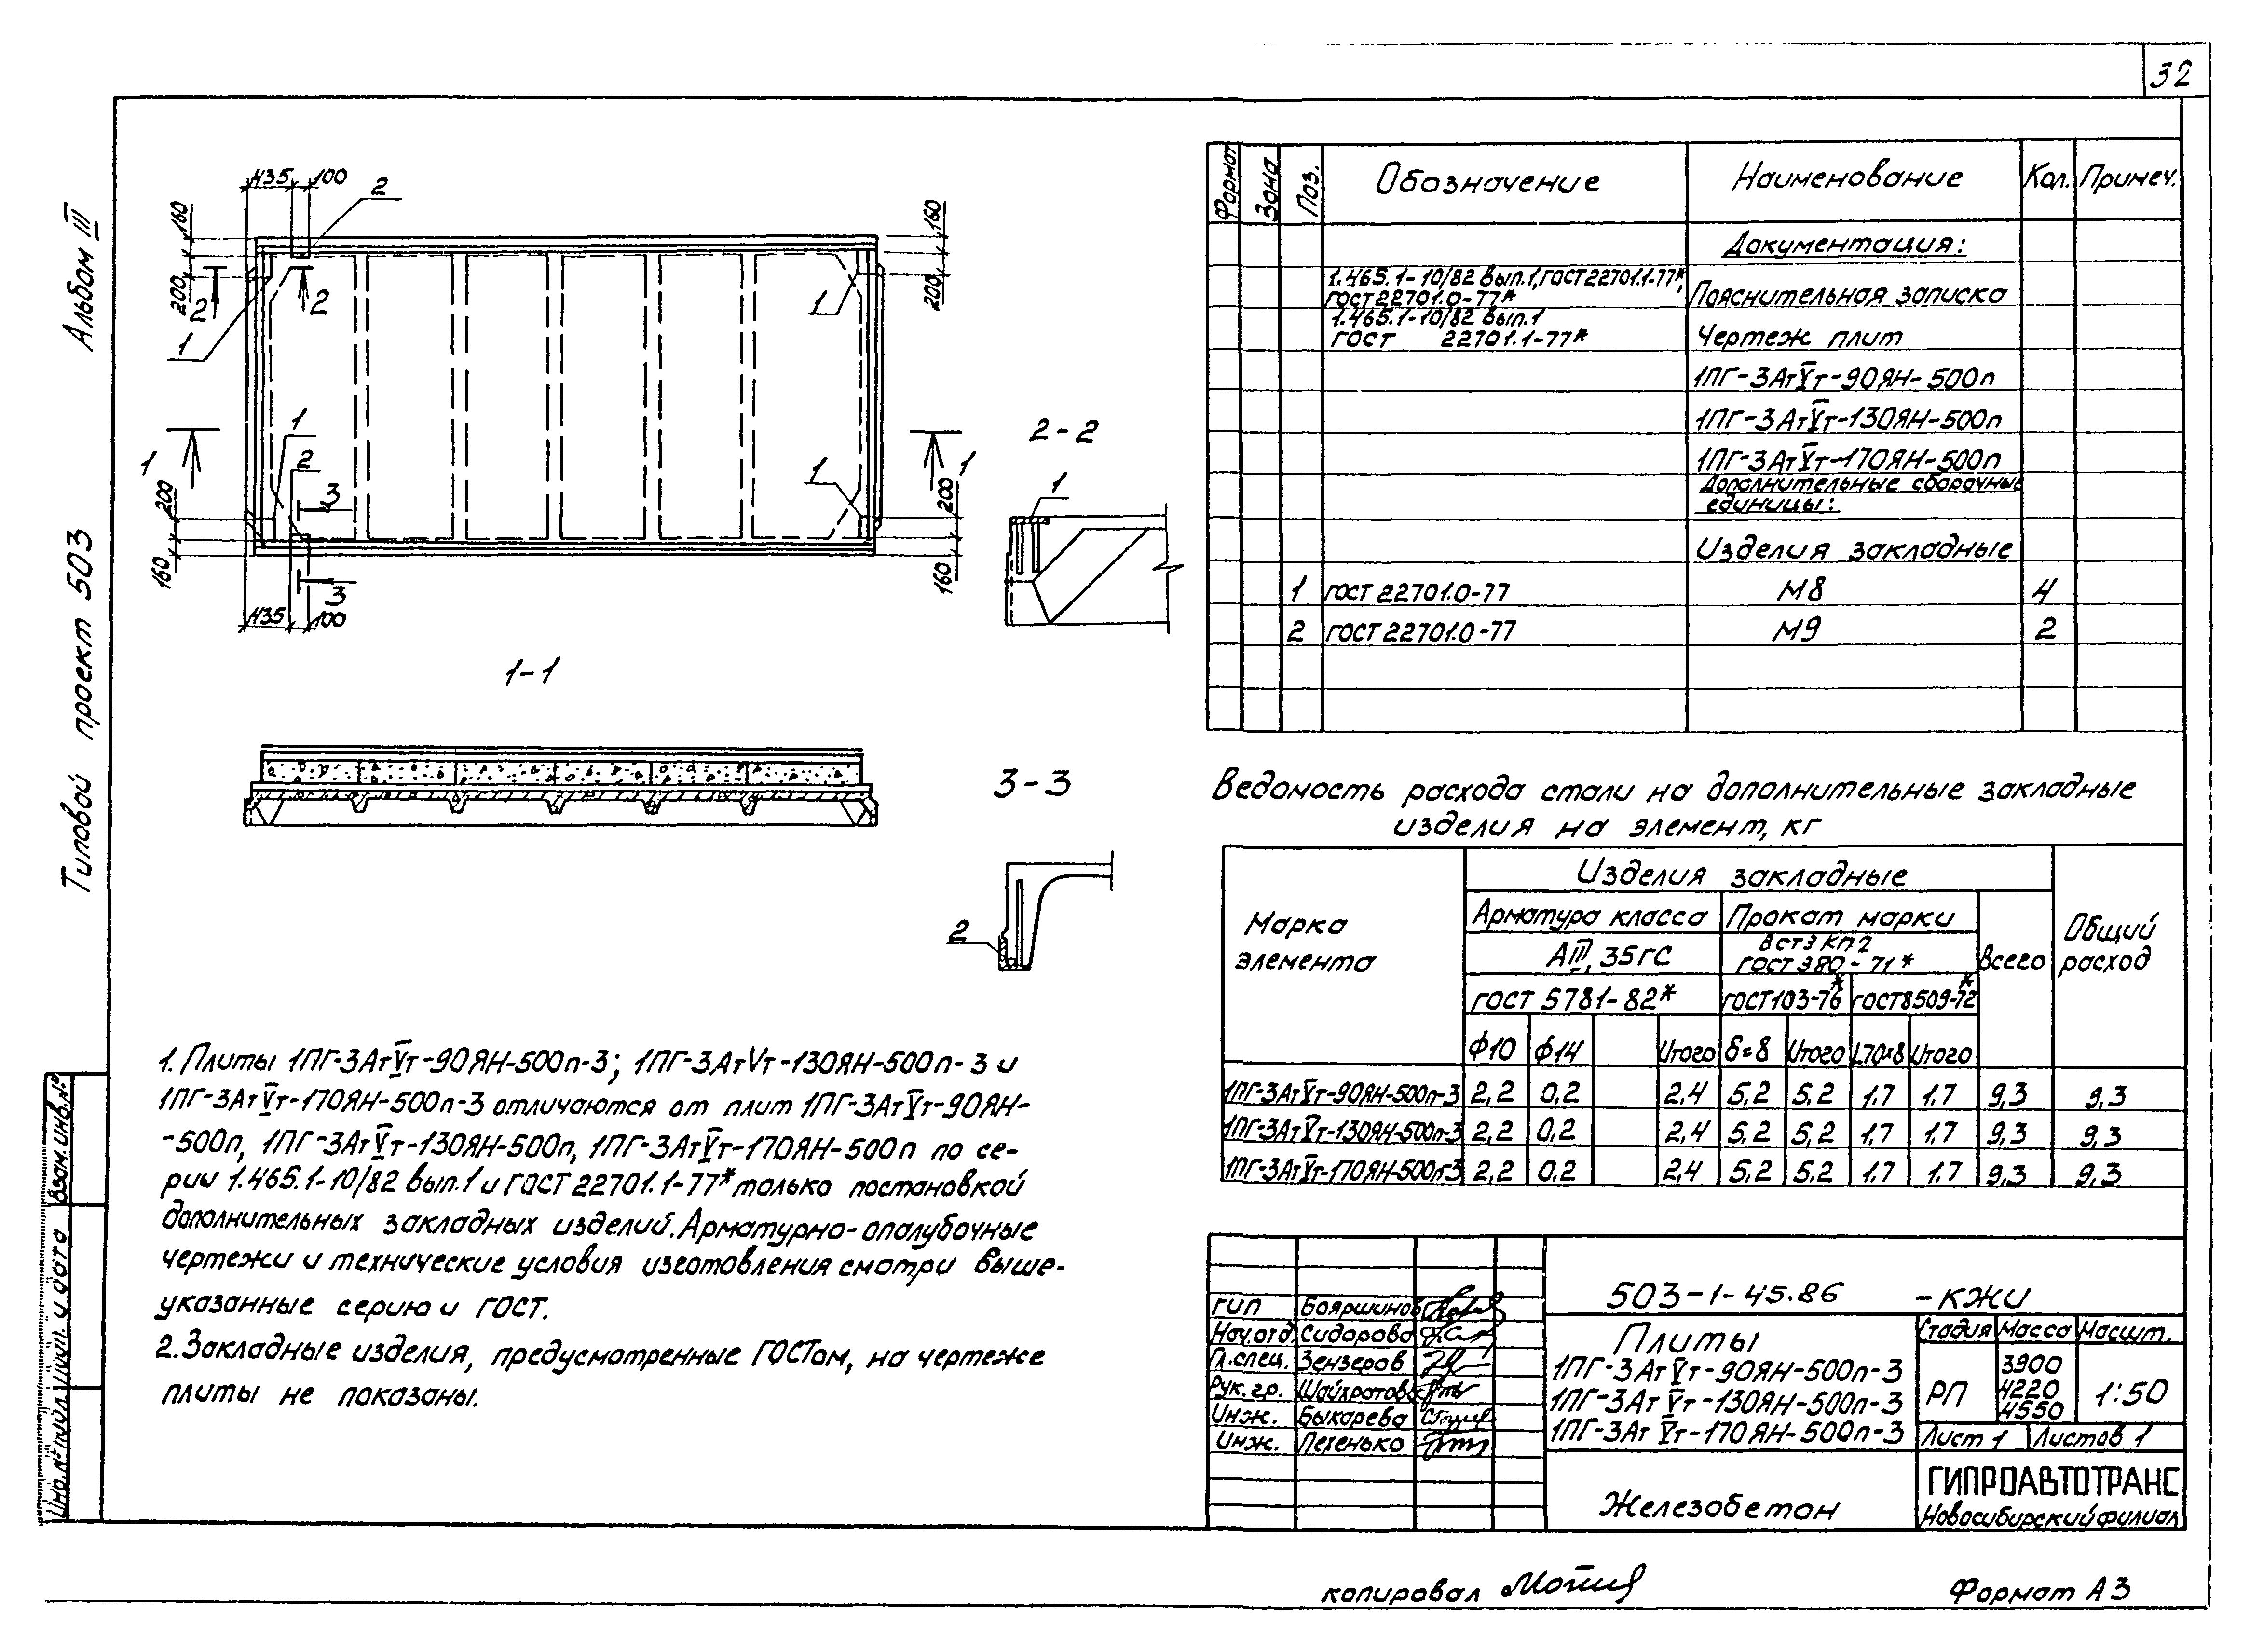 32
Альбом III
Типовой проект 503
Взам. инв. №
435 100 2
160
200
2 2
1
1
160
200
1
1
2
3
3
200
160
435 100
1
200
160
1
1-1
2-2
1
3-3
2
Формат Зона Поз. Обозначение Наименование Кол. Примеч.
Документация:
1.465.1-10/82 вып.1, ГОСТ 22701.1-77*,
ГОСТ 22701.0-77* Пояснительная записка
1.465.1-10/82 вып.1
ГОСТ 22701.1-77* Чертеж плит
1ПГ-3АтV̅т-90ЯН-500п
1ПГ-3АтV̅т-130ЯН-500п
1ПГ-3АтV̅т-170ЯН-500п
Дополнительные сборочные
единицы:
Изделия закладные
1 ГОСТ 22701.0-77 М8 4
2 ГОСТ 22701.0-77 М9 2
Ведомость расхода стали на дополнительные закладные
изделия на элемент, кг
Марка элемента Изделия закладные Общий расход
Арматура класса Прокат марки Всего
АIII, 35ГС ВСт3 КП2
ГОСТ 380-71*
ГОСТ 5781-82* ГОСТ 103-76* ГОСТ 8509-72*
Ф10 Ф14 Итого δ=8 Итого L70×8 Итого
1ПГ-3АтVт-90ЯН-500п-3 2,2 0,2 2,4 5,2 5,2 1,7 1,7 9,3 9,3
1ПГ-3АтVт-130ЯН-500п-3 2,2 0,2 2,4 5,2 5,2 1,7 1,7 9,3 9,3
1ПГ-3АтVт-170ЯН-500п-3 2,2 0,2 2,4 5,2 5,2 1,7 1,7 9,3 9,3
1. Плиты 1ПГ-3АтVт-90ЯН-500п-3; 1ПГ-3АтVт-130ЯН-500п-3 и
1ПГ-3АтVт-170ЯН-500п-3 отличаются от плит 1ПГ-3АтVт-90ЯН-
-500п, 1ПГ-3АтVт-130ЯН-500п, 1ПГ-3АтVт-170ЯН-500п по се-
рии 1.465.1-10/82 вып.1 и ГОСТ 22701.1-77* только постановкой
дополнительных закладных изделий. Арматурно-опалубочные
чертежи и технические условия изготовления смотри выше-
указанные серию и ГОСТ.
2. Закладные изделия, предусмотренные ГОСТом, на чертеже
плиты не показаны.
ГИП Бояршинов
Нач.отд. Сидорова
Гл.спец. Зензеров
Рук.гр. Шайхратова
Инж. Быкарева
Инж. Петенько
503-1-45.86 -КЖИ
Плиты
1ПГ-3АтVт-90ЯН-500п-3
1ПГ-3АтVт-130ЯН-500п-3
1ПГ-3АтVт-170ЯН-500п-3
Стадия Масса Масшт.
РП 3900 4220 4550 1:50
Лист 1 Листов 1
Железобетон
ГИПРОАВТОТРАНС
Новосибирский филиал
копировал
Формат А3